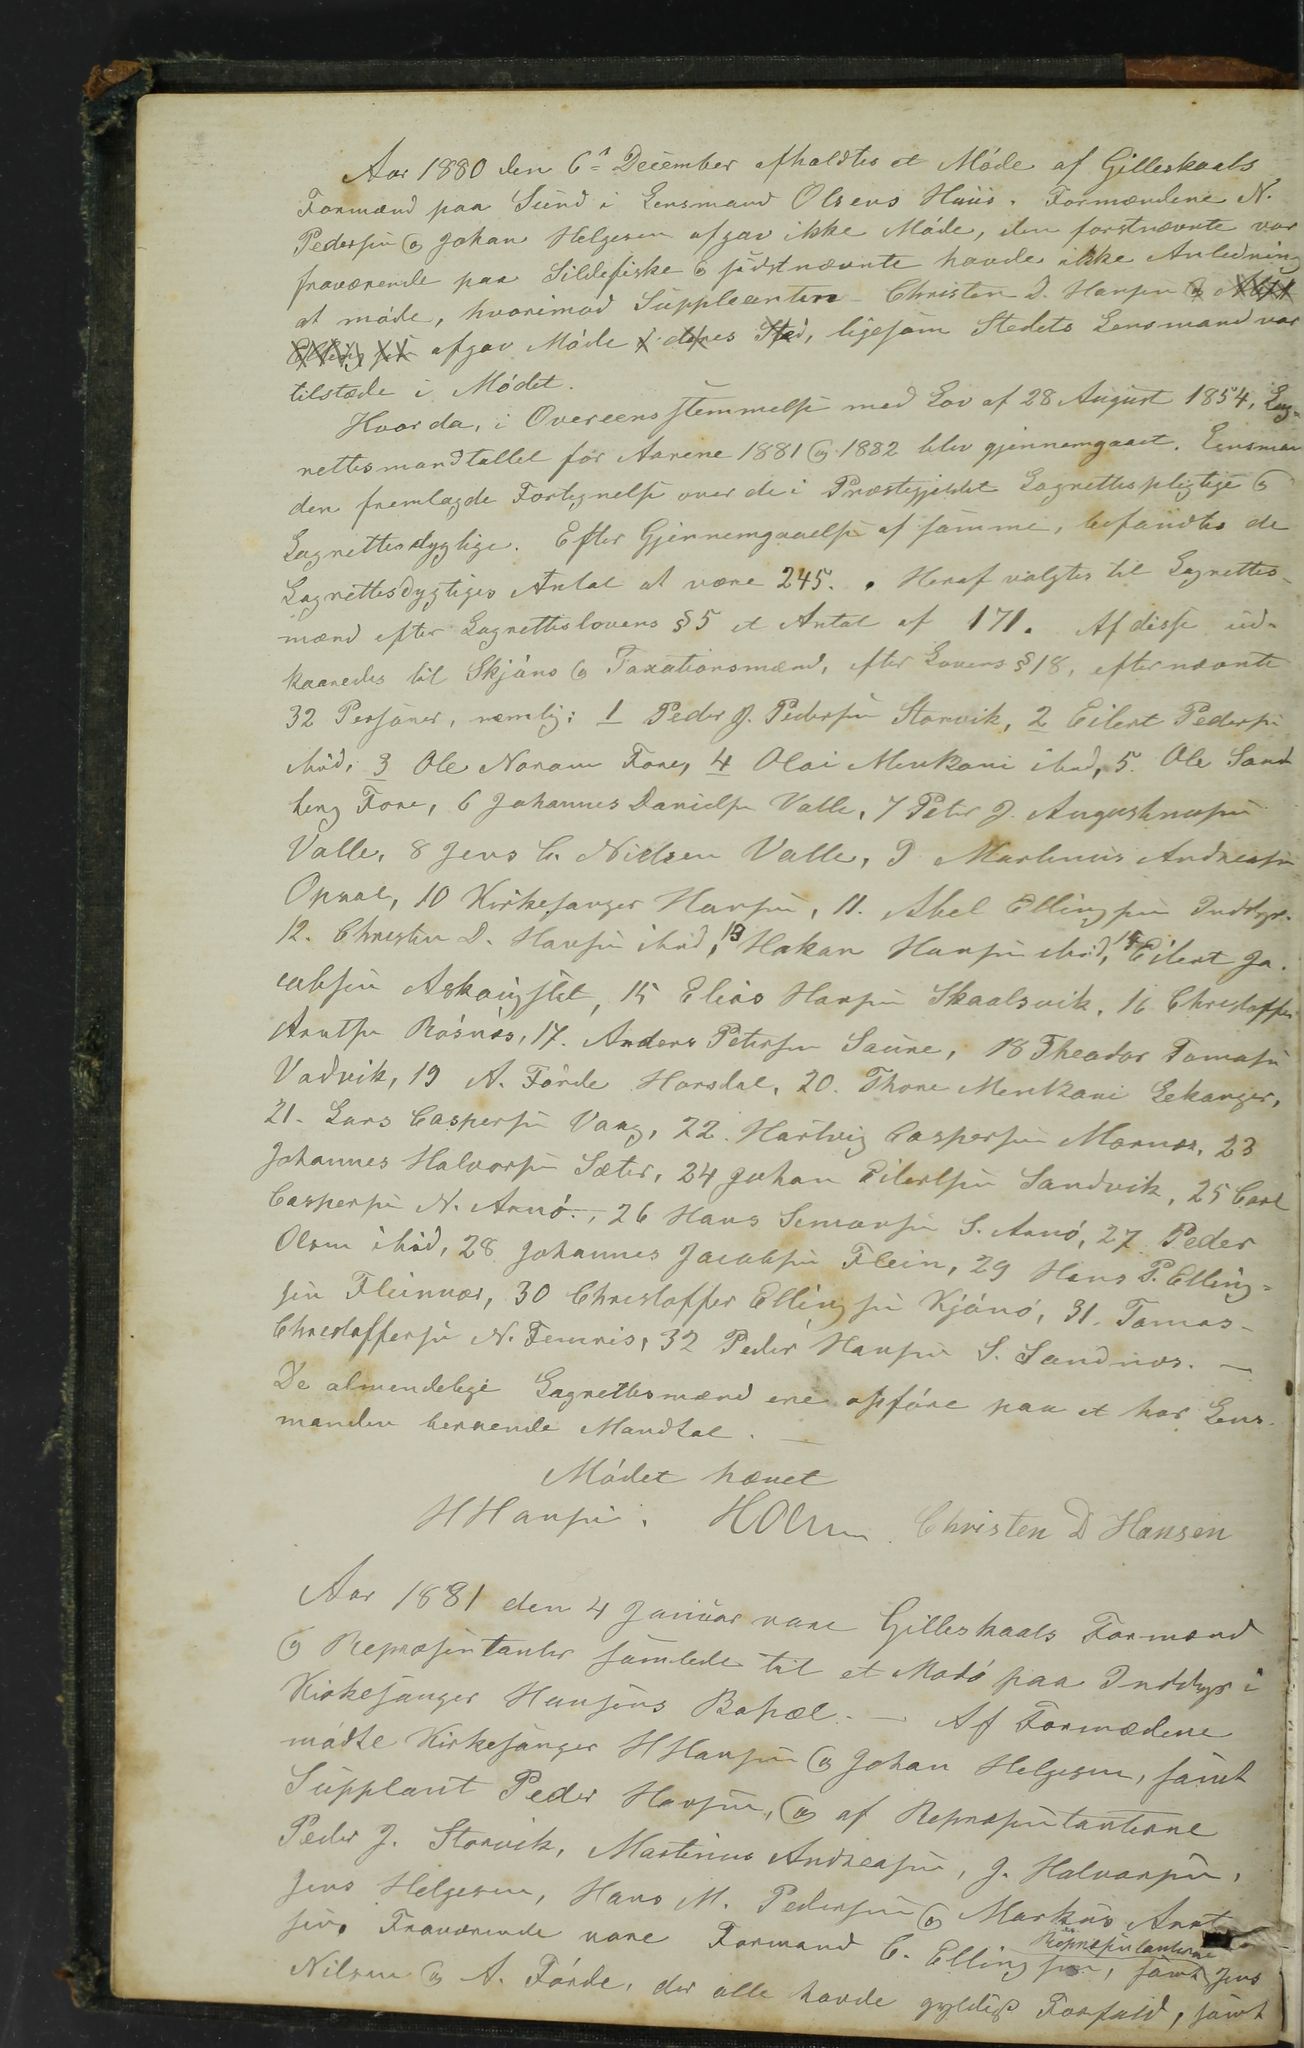 Aar 1880 den 6te December afholdtes et Møde af Gilleskaals
Formænd paa Sund i Lensmand Olsens Huus. Formændene N.
Pedersen og Johan Helgesen afgav ikke Møde, den førstnævnte var
fraværende paa Sildefiske og sidstnævnte havde ikke Anledning
at møde, hvorimod Suppleanten Christen D. Hansen og
afgav Møde i deres Sted, ligesom Stedets Lensmand var
tilstæde i Mødet.
Hvorda, i Overeensstemmelse med Lov af 28 August 1854, Lag-
rettesmandtallet for Aarene 1881 og 1882 blev gjennemgaaet. Lensman
den fremlagde Fortegnelse over de i Præstegjeldet Lagrettespligtige og
Lagrettesdygtige. Efter Gjennemgaaelse af samme, befandtes de
Lagrettesdygtiges Antal at være 245. Heraf valgtes til Lagrettes-
mænd efter Lagretteslovens § 5 et Antal af 171. Af disse ud-
kaaredes til Skjøns og Taxationsmænd, efter Lovens § 18, efternævnte
32 Personer, nemlig: 1 Peder J. Pedersen Storvik, 2 Eilert Pedersen
ibid, 3 Ole Noraum Fore, 4 Olai Menkoni ibid, 5. Ole Sand
berg Fore, 6 Johannes Danielsen Valle, 7 Peter J. Augustinusen
Valle, 8 Jens C. Nielsen Valle, 9 Martinus Andreasen
Opsal, 10 Kirkesanger Hansen, 11. Abel Ellingsen Inddyr.
12. Christen D. Hansen ibid, 13 Hakan Hansen ibid, 14 Eilert Ja-
cobsen Askougslet, 15 Elias Hansen Skaalsvik, 16 Christoffer
Arntsen Røsnes, 17. Anders Petersen Saure, 18 Theodor Tomasen
Vadvik, 19 A. Førde Horsdal, 20. Thore Menkoni Lekanger,
21. Lars Caspersen Vaag, 22. Hartvig Caspersen Mornes, 23
Johannes Halvorsen Sæter, 24 Johan Eilertsen Sandvik, 25 Carl
Caspersen N. Arnø, 26 Hans Simonsen S. Arnø, 27 Peder
Olsen ibid, 28 Johannes Jacobsen Flein, 29 Hans P. Elling-
sen Fleinvær, 30 Christoffer Ellingsen Kjønø, 31. Tomas
Christoffersen N. Femris, 32 Peder Hansen S. Sandnes. —
De almendelige Lagrettesmænd ere opføre paa et hos Lens-
manden beroende Mandtal. —
Mødet hævet
H Hansen. H Olsen Christen D Hansen
Aar 1881 den 4 Januar vare Gilleskaals Formænd
og Repræsentanter samlede til et Mødø paa Inddyr i
Kirkesanger Hansens Bopæl. — Af Formædene
mødte Kirkesanger H Hansen og Johan Helgesen, samt
Supplant Peder Hansen, og af Repræsentanterne
Peder J. Storvik, Martinus Andreasen, J. Halvorsen,
Jens Helgesen, Hans M. Pedersen og Markus Arnt
sen. Fraværende vare Formand C. Ellingsen, samt Repræsentanterne Jens
Nilsen og A. Førde, der alle havde gyldigt Forfald, samt